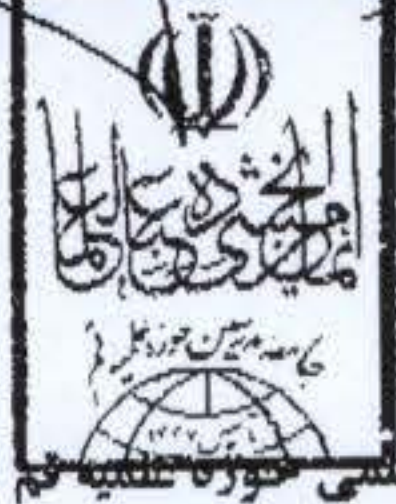 انما یخشی الله من عباده العلماء
جامعه مدرسین حوزه علمیه قم
تاسیس
علمی حوزه علمیه قم